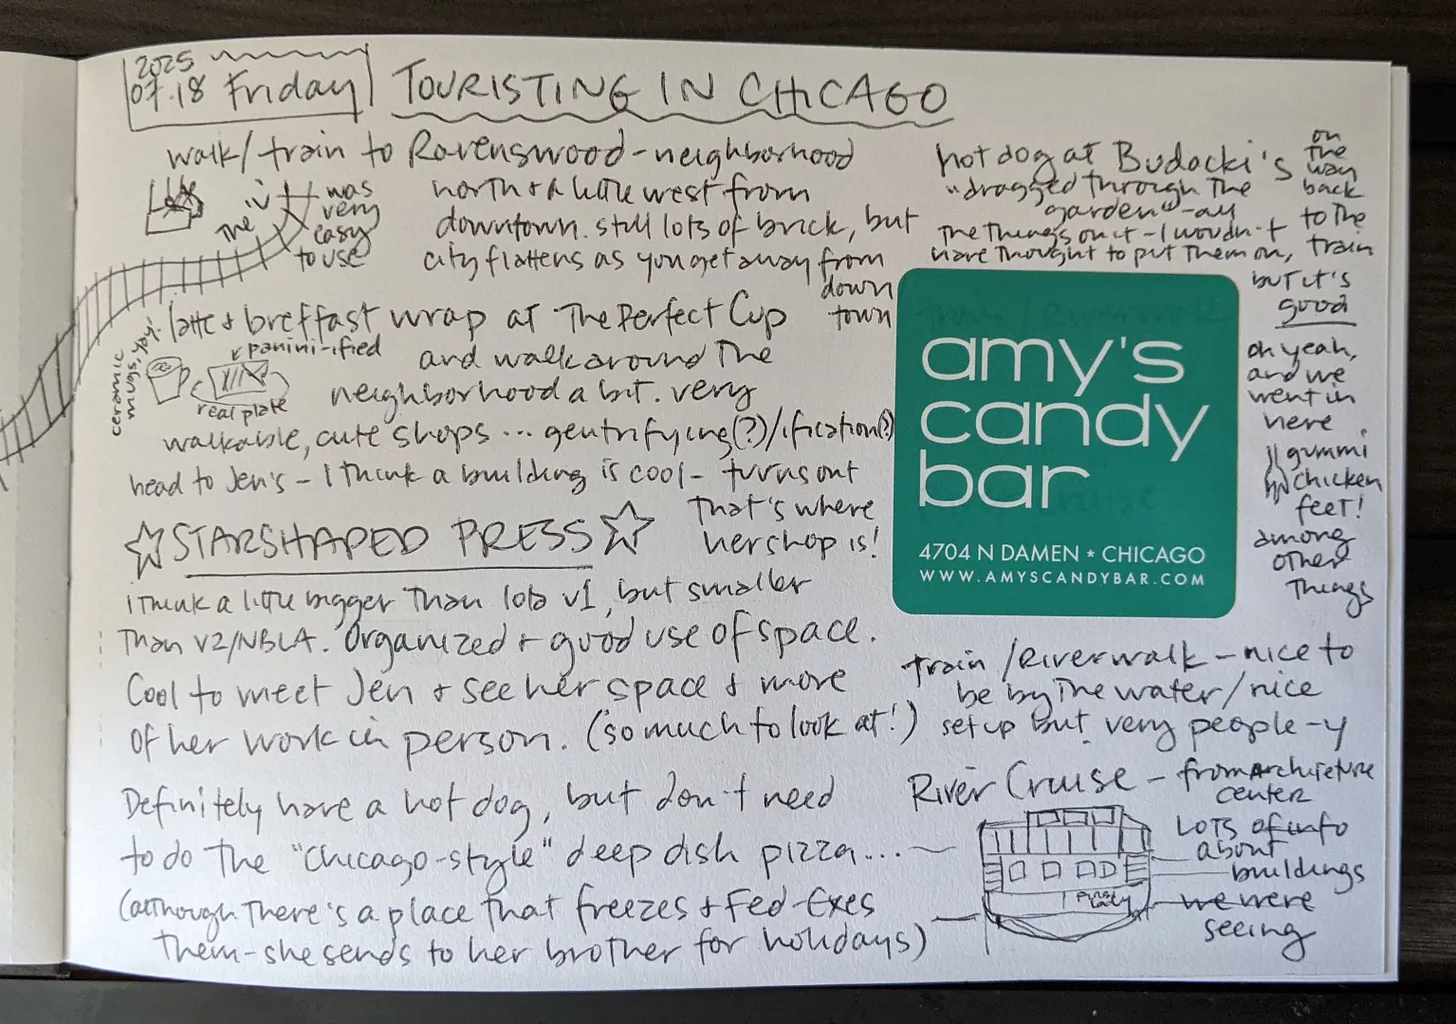 2025
07.18 Friday
TOURISTING IN CHICAGO
walk/train to Ravenswood-neighborhood
north + a little west from
downtown. still lots of brick, but
city flattens as you get away from
down
town
The "L" was
very
easy
to use
latte + breffast wrap at The Perfect Cup
and walk around The
neighborhood a bit. very
walkable, cute shops... gentrifying(?)/ification(?)
ceramic
mugs, yay!
panini-ified
real plate
head to Jen's - I think a building is cool - turns out
That's where
her shop is!
STARSHAPED PRESS
i think a little bigger Than lola v1, but smaller
Than v2/NBLA. Organized + good use of space.
Cool to meet Jen + see her space + more
of her work in person. (so much to look at!)
Definitely have a hot dog, but don't need
to do The "Chicago-style" deep dish pizza...
(although There's a place that freezes + Fed-Exes
Them-she sends to her brother for holidays)
hot dog at Budacki's
"dragged through The
garden" - all
The Things on it - I wouldn't
have Thought to put Them on,
but it's
good
on
The
way
back
to The
train
amy's
candy
bar
4704 N DAMEN * CHICAGO
WWW.AMYSCANDYBAR.COM
oh yeah,
and we
went in
here
gummi
chicken
feet!
among
other
Things
train/Riverwalk - nice to
be by The water/nice
set up but very people-y
River Cruise - from Architecture
center
LOTS of info
about
buildings
we were
seeing